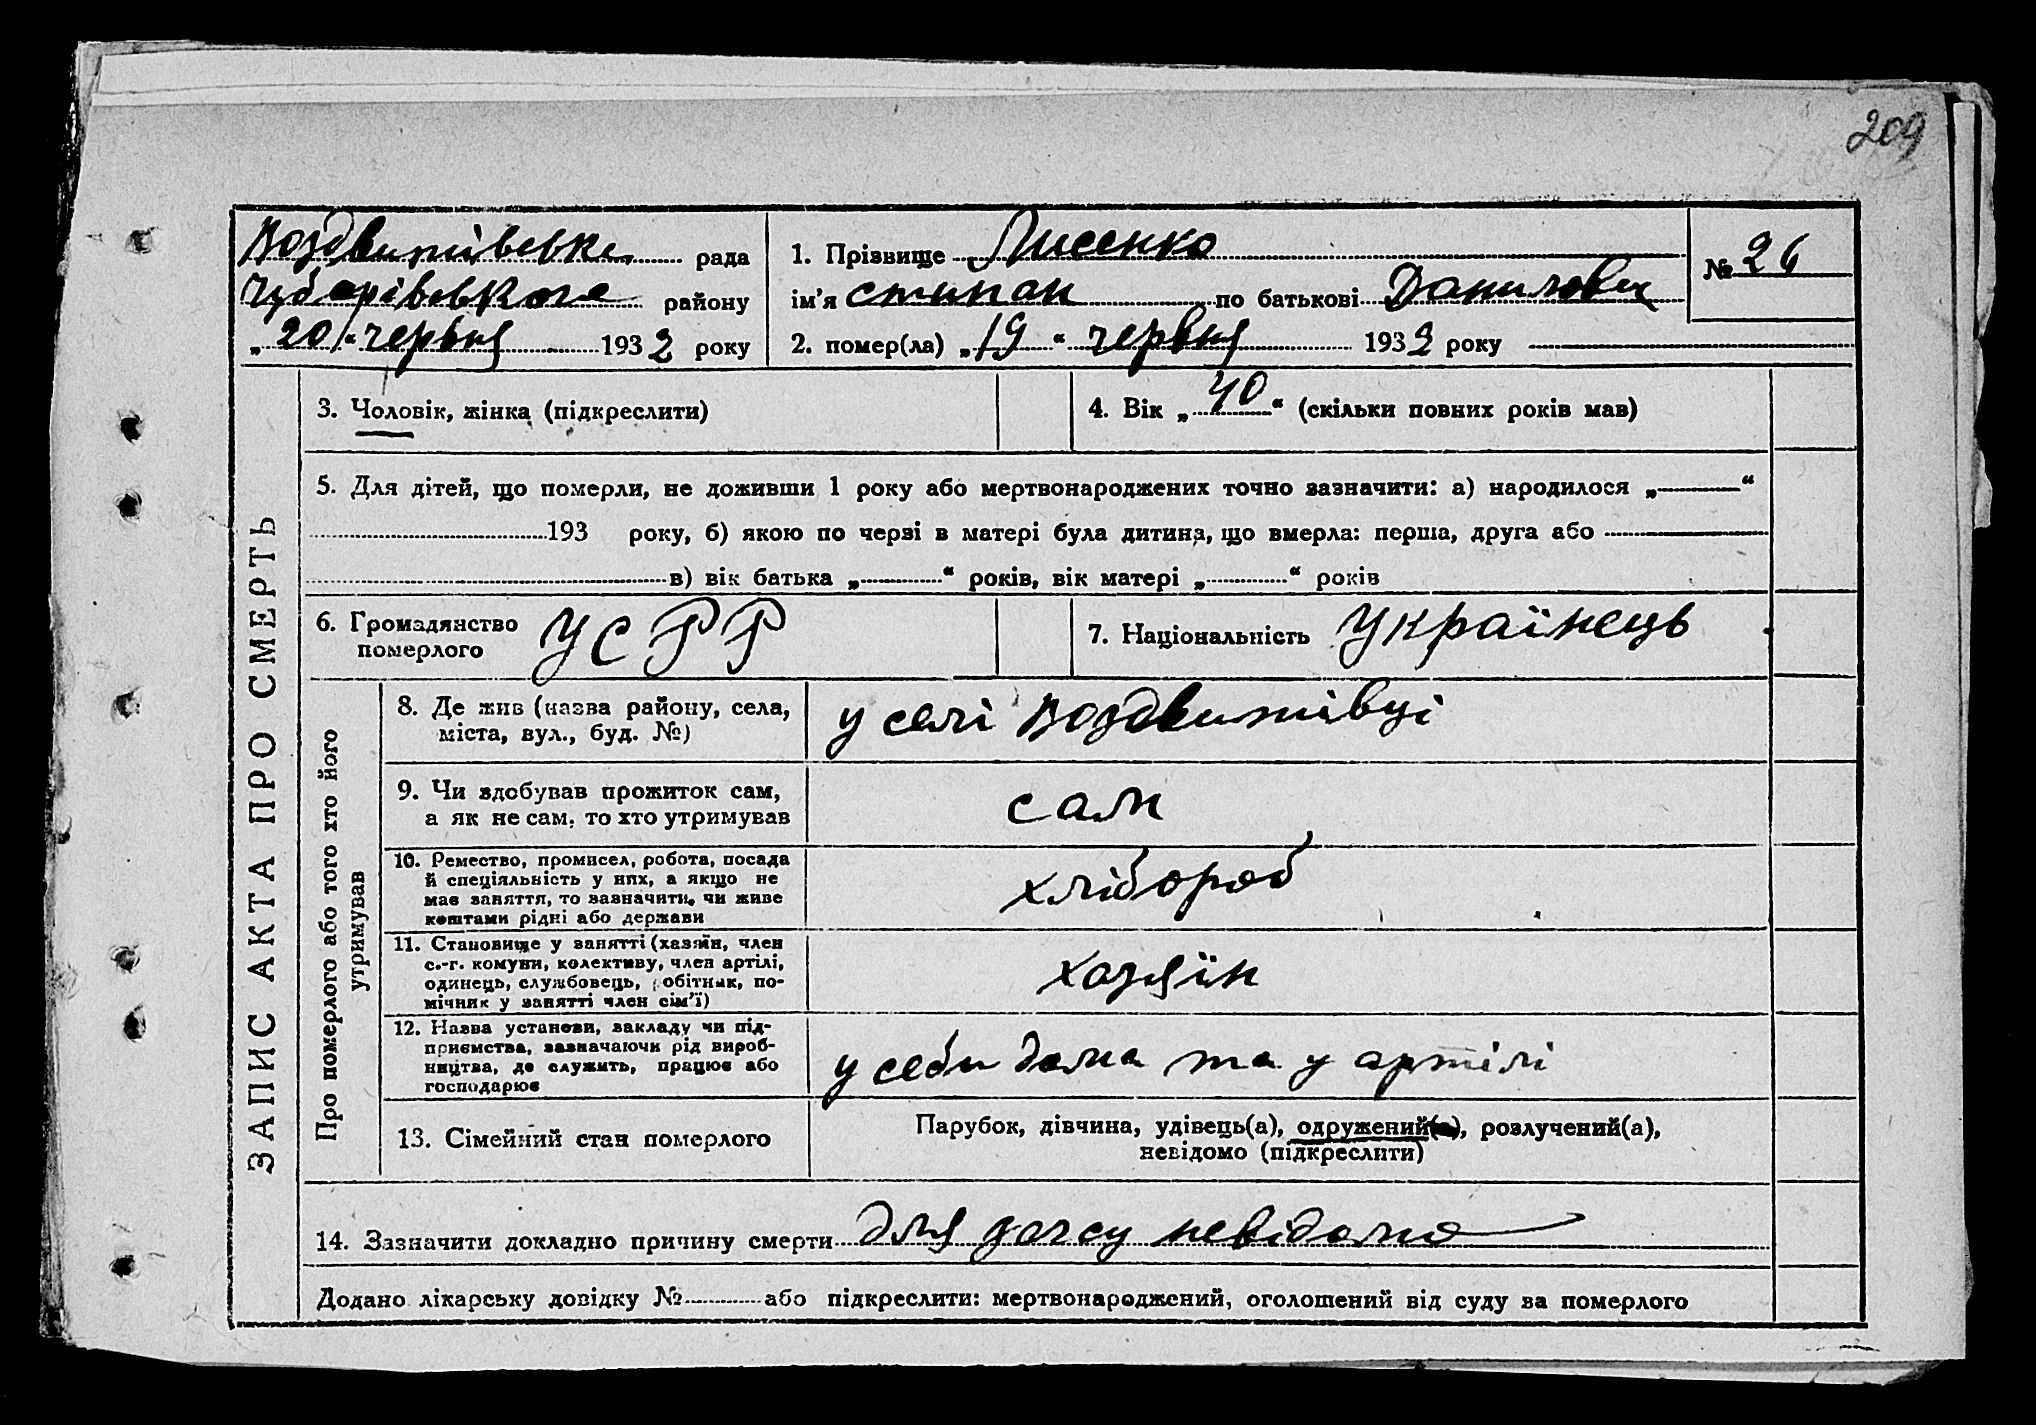 209
Воздвипівська рада
Чубарівського району
„20“ червня 1932 року
1. Прізвище Лисенко
ім'я степан по батькові Данилович
2. помер(ла) „19“ червня 1932 року
№ 26
ЗАПИС АКТА ПРО СМЕРТЬ
3. Чоловік, жінка (підкреслити)
4. Вік „40“ (скільки повних років мав)
5. Для дітей, що померли, не доживши 1 року або мертвонароджених точно зазначити: а) народилося „ “
193 року, б) якою по черзі в матері була дитина, що вмерла: перша, друга або
в) вік батька „ “ років, вік матері „ “ років
6. Громадянство
померлого УСРР
7. Національність Українець
Про померлого або того хто його
утримував
8. Де жив (назва району, села,
міста, вул., буд. №)
у селі Воздвипівці
9. Чи здобував прожиток сам,
а як не сам, то хто утримував
сам
10. Ремество, промисел, робота, посада
й спеціяльність у них, а якщо не
має заняття, то зазначити, чи живе
коштами рідні або держави
хлібороб
11. Становище у занятті (хазяїн, член
с.-г. комуни, колективу, член артілі,
одинець, службовець, робітник, по-
мічник у занятті член сім'ї)
хозяїн
12. Назва установи, закладу чи під-
приємства, зазначаючи рід вироб-
ництва, де служить, працює або
господарює
у себи дома та у артілі
13. Сімейний стан померлого
Парубок, дівчина, удівець(а), одружений(а), розлучений(а),
невідомо (підкреслити)
14. Зазначити докладно причину смерти для загсу невідомо
Додано лікарську довідку № або підкреслити: мертвонароджений, оголошений від суду за померлого